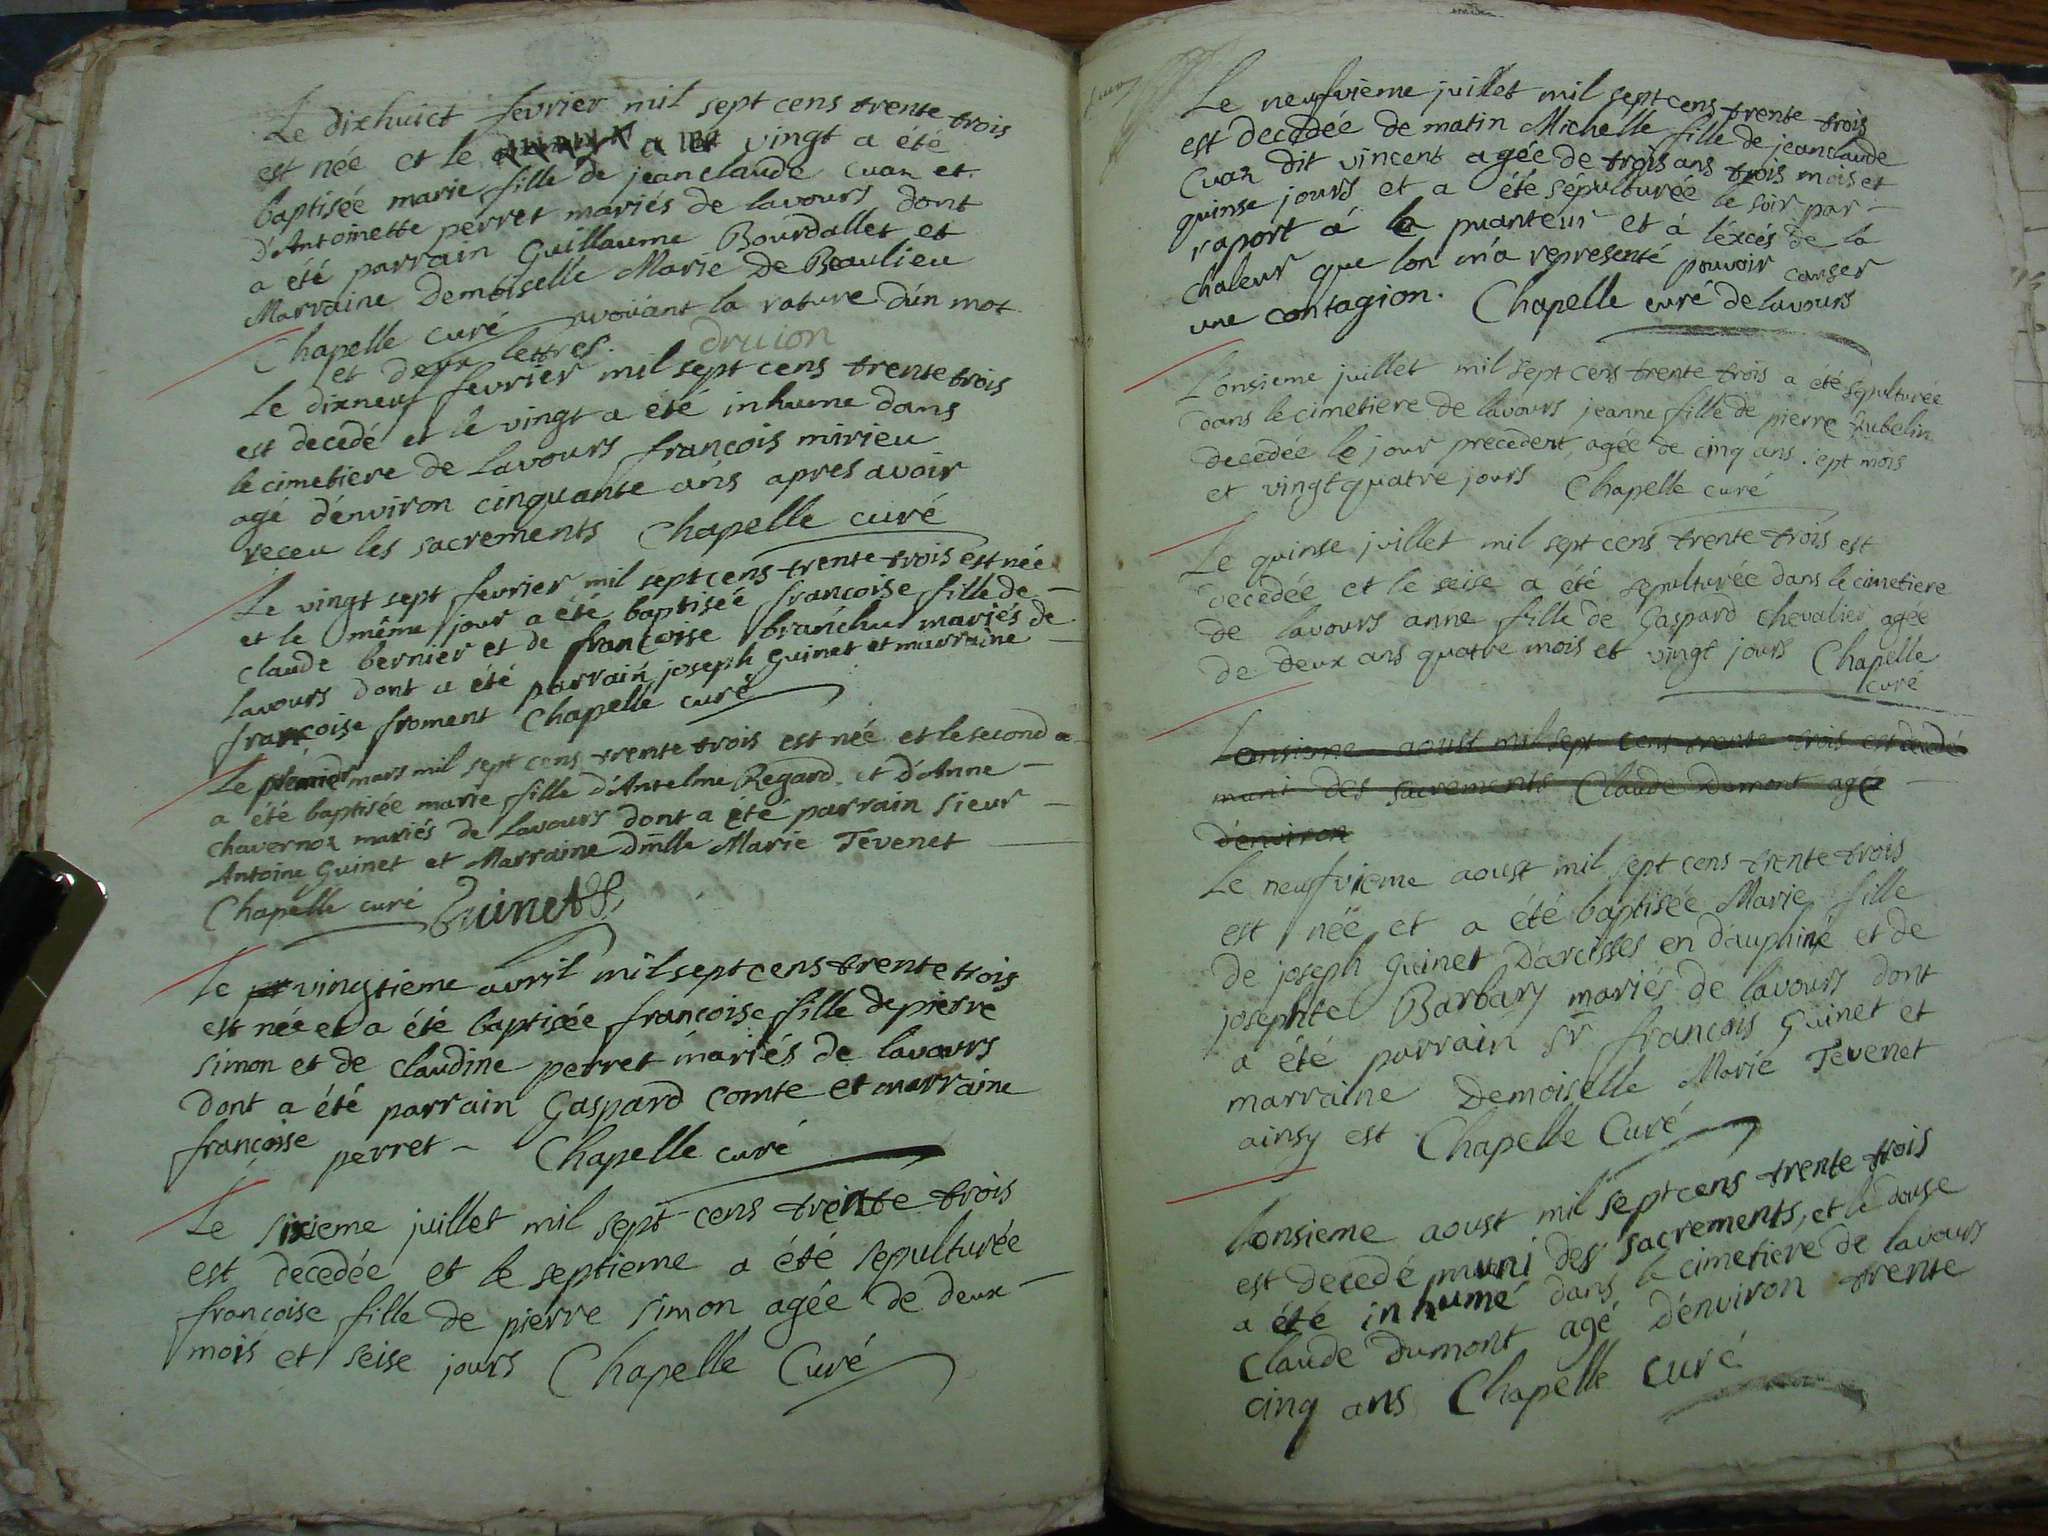 Le dixhuict fevrier mil sept cens trente trois
est née et le a été vingt a été
baptisée marie fille de jeanclaude Cuaz et
d'Antoinette perret mariés de lavours dont
a été parrain Guillaume Bourdallet et
Marraine Demoiselle Marie De Beaulieu
Chapelle curé avoüant la rature d'un mot
et deux lettres.
Le dixneuf fevrier mil sept cens trente trois
est decedé et le vingt a été inhumé dans
le cimetiere de Lavours françois mirieu
agé d'environ cinquante ans apres avoir
receu les sacrements Chapelle curé
Le vingt sept fevrier mil sept cens trente trois est née
et le même jour a été baptisée françoise fille de
claude bernier et de françoise branchu mariés de
lavours dont a été parrain joseph Guinet et marraine
françoise froment Chapelle curé
Le premier mars mil sept cens trente trois est née et le second a
a été baptisée marie fille d'Antelme Regard et d'Anne
Chavernoz mariés de Lavours dont a été parrain sieur
Antoine Guinet et Marraine dmlle Marie Tevenet
Chapelle curé Guinet
Le vingtieme avril mil sept cens trente trois
est née et a été baptisée françoise fille de pierre
simon et de claudine perret mariés de lavours
dont a été parrain Gaspard comte et marraine
françoise perret Chapelle curé
Le sixieme juillet mil sept cens trente trois
est decedée et le septieme a été sepulturée
françoise fille de pierre simon agée de deux
mois et seise jours Chapelle Curé
Le neufvieme juillet mil sept cens trente trois
est decedée de matin Michelle fille de jeanclaude
Cuaz dit vincent agée de trois ans trois mois et
quinse jours et a été sépulturée le soir par
raport á la puanteur et à l'éxcés de la
chaleur que lon m'a representé pouvoir causer
une contagion. Chapelle curé de lavours
L'onsieme juillet mil sept cens trente trois a été sepulturée
dans le cimetiere de lavours jeanne fille de pierre hubelin
decedée le jour precedent, agée de cinq ans sept mois
et vingt quatre jours Chapelle curé
Le quinse juillet mil sept cens trente trois est
decedée et le seise a été sepulturée dans le cimetiere
de lavours anne fille de Gaspard chevalier agée
de deux ans quatre mois et vingt jours Chapelle
curé
L'onsieme aoust mil sept cens trente trois est decedé
muni des sacrements Claude Dumont agé
d'environ
Le neufvieme aoust mil sept cens trente trois
est née et a été baptisée Marie fille
de joseph Guinet d'arcisses en dauphiné et de
josephte Barbary mariés de lavours dont
a été parrain Sr françois Guinet et
marraine Demoiselle Marie Tevenet
ainsy est Chapelle Curé
L'onsieme aoust mil sept cens trente trois
est decedé muni des sacrements, et le douse
a été inhumé dans le cimetiere de lavours
Claude Dumont agé d'environ trente
cinq ans Chapelle curé